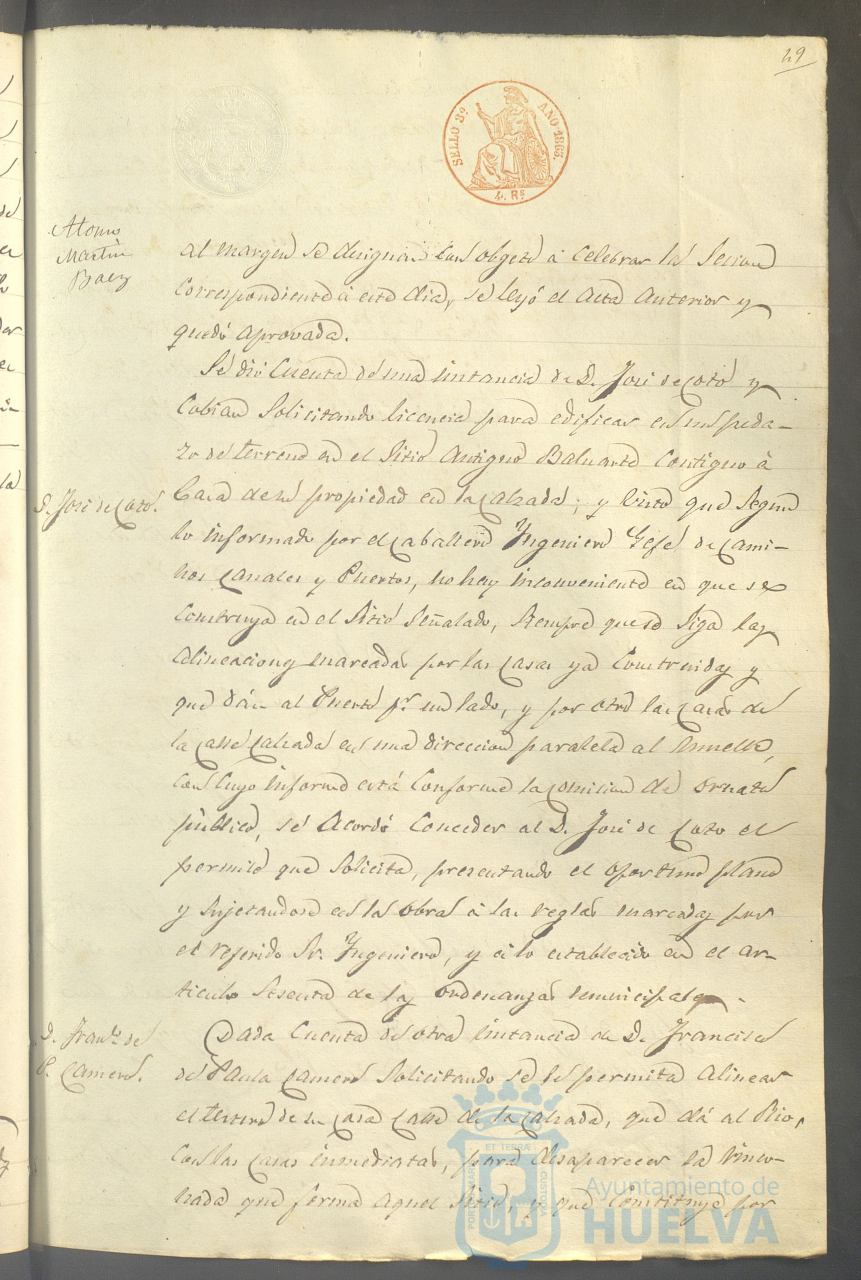 49
SELLO 3º AÑO 1863.
4. Rs
Alonso
Martin
Baez
al margen se designan con objeto á celebrar la Sesion
correspondiente á este dia, se leyó el Acta anterior y
quedó aprovada.
Se dió Cuenta de una instancia de D. José de Coto y
Cobian Solicitando licencia para edificar en un peda-
zo de terreno en el Sitio Antiguo Baluarte Contiguo á
D. José de Coto.
Casa de su propiedad en la Calzada; y Visto que segun
lo informado por el Caballero Yngeniero Gefe de Cami-
nos Canales y Puertos, no hay inconveniente en que se
Construya en el Sitio Señalado, Siempre que se Siga las
alineaciones marcadas por las Casas ya Construidas y
que dán al Puerto pr. un lado, y por otro las Casas de
la Calle Calzada en una direccion paralela al Muelle,
con cuyo informe está Conforme la Comision de Ornato
público, se Acordó Conceder al D. José de Coto el
permiso que Solicita, presentando el Oportuno plano
y Sujetandose en las Obras á las reglas marcadas por
el referido Sr. Yngeniero, y á lo establecido en el ar-
ticulo Sesenta de las Ordenanzas municipales.
D. Franco. de
P. Camero.
Dada Cuenta de otra instancia de D. Francisco
de Paula Camero Solicitando se le permita Alinear
el testero de su Casa Calle de la Calzada, que dá al Rio,
con las Casas inmediatas, para desaparecer la
que forma aquel Sitio, y que Constituye por
PORTUS MARIS ET TERRAE CUSTODIA
Ayuntamiento de
HUELVA